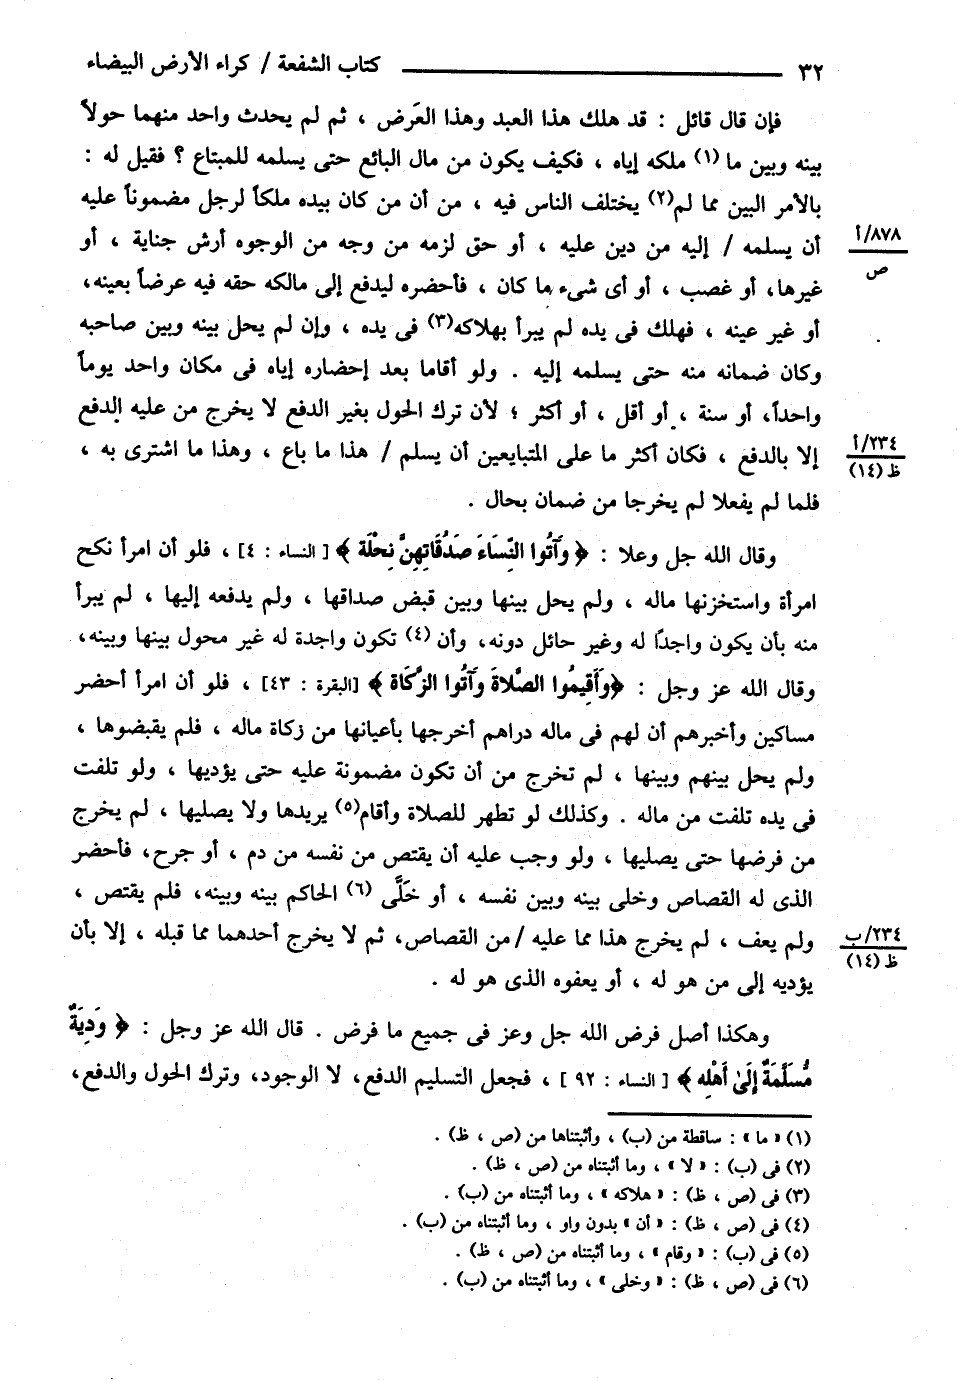 ٣٢ ــــــــــــــــــــ كتاب الشفعة / كراء الأرض البيضاء
فإن قال قائل : قد هلك هذا العبد وهذا العَرض ، ثم لم يحدث واحد منهما حولاً
بينه وبين ما (١) ملكه إياه ، فكيف يكون من مال البائع حتى يسلمه للمبتاع ؟ فقيل له :
بالأمر البين مما لم(٢) يختلف الناس فيه ، من أن من كان بيده ملكاً لرجل مضموناً عليه
أن يسلمه / إليه من دين عليه ، أو حق لزمه من وجه من الوجوه أرش جناية ، أو
٨٧٨/أ
ص
غيرها، أو غصب ، أو أى شىء ما كان ، فأحضره ليدفع إلى مالكه حقه فيه عرضاً بعينه،
أو غير عينه ، فهلك فى يده لم يبرأ بهلاكه(٣) فى يده ، وإن لم يحل بينه وبين صاحبه
وكان ضمانه منه حتى يسلمه إليه . ولو أقاما بعد إحضاره إياه فى مكان واحد يوماً
واحداً، أو سنة ، أو أقل ، أو أكثر ؛ لأن ترك الحول بغير الدفع لا يخرج من عليه الدفع
إلا بالدفع ، فكان أكثر ما على المتبايعين أن يسلم / هذا ما باع ، وهذا ما اشترى به ،
٢٣٤/أ
ظ (١٤)
فلما لم يفعلا لم يخرجا من ضمان بحال .
وقال الله جل وعلا : ﴿ وَآتُوا النِّسَاءَ صَدُقَاتِهِنَّ نِحْلَة ﴾ [ النساء : ٤] ، فلو أن امرأ نكح
امرأة واستخزنها ماله ، ولم يحل بينها وبين قبض صداقها ، ولم يدفعه إليها ، لم يبرأ
منه بأن يكون واجدًا له وغير حائل دونه، وأن (٤) تكون واجدة له غير محول بينها وبينه،
وقال الله عز وجل : ﴿وَأَقِيمُوا الصَّلاةَ وَآتُوا الزَّكَاة ﴾ [البقرة : ٤٣] ، فلو أن امرأ أحضر
مساكين وأخبرهم أن لهم فى ماله دراهم أخرجها بأعيانها من زكاة ماله ، فلم يقبضوها ،
ولم يحل بينهم وبينها ، لم تخرج من أن تكون مضمونة عليه حتى يؤديها ، ولو تلفت
فى يده تلفت من ماله . وكذلك لو تطهر للصلاة وأقام(٥) يريدها ولا يصليها ، لم يخرج
من فرضها حتى يصليها ، ولو وجب عليه أن يقتص من نفسه من دم ، أو جرح، فأحضر
الذى له القصاص وخلى بينه وبين نفسه ، أو خَلَّى (٦) الحاكم بينه وبينه، فلم يقتص ،
ولم يعف ، لم يخرج هذا مما عليه / من القصاص، ثم لا يخرج أحدهما مما قبله ، إلا بأن
٢٣٤/ب
ظ (١٤)
يؤديه إلى من هو له ، أو يعفوه الذى هو له .
وهكذا أصل فرض الله جل وعز فى جميع ما فرض . قال الله عز وجل : ﴿ وَدِيَةٌ
مُّسَلَّمَةٌ إِلَىٰ أَهْلِه ﴾ [ النساء : ٩٢ ] ، فجعل التسليم الدفع، لا الوجود، وترك الحول والدفع،
(١) « ما » : ساقطة من (ب) ، وأثبتناها من (ص ، ظ) .
(٢) فى (ب) : « لا » ، وما أثبتناه من (ص ، ظ) .
(٣) فى (ص ، ظ) : « هلاكه » ، وما أثبتناه من (ب) .
(٤) فى (ص ، ظ) : « أن » بدون واو ، وما أثبتناه من (ب) .
(٥) فى (ب) : « وقام » ، وما أثبتناه من (ص ، ظ) .
(٦) فى (ص ، ظ) : « وخلى » ، وما أثبتناه من (ب) .